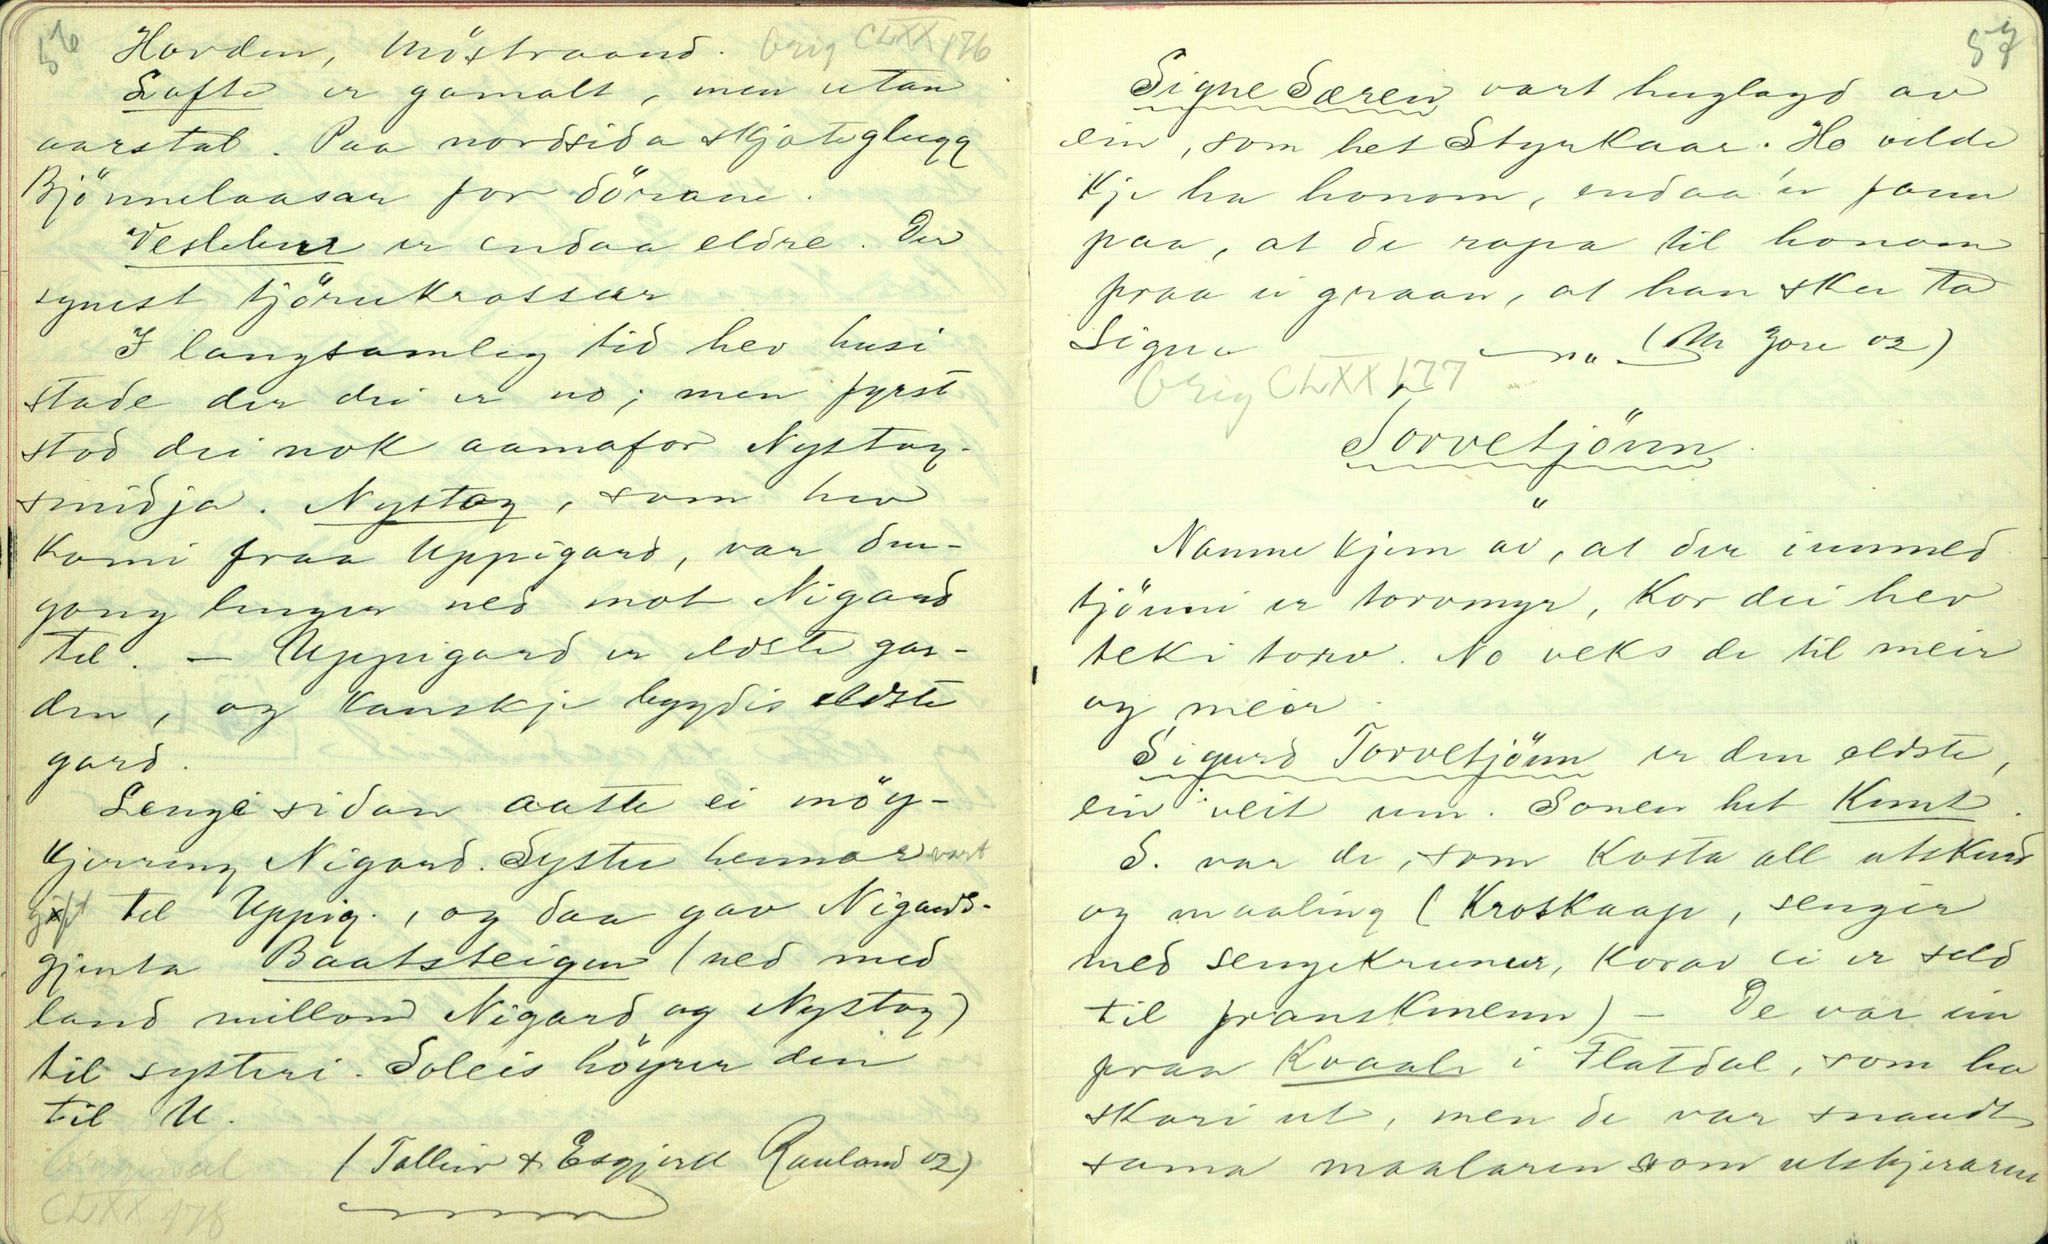 56
Hovden, Möstraand. Orig CLXX 176
Lofte er gamalt, men utan
aarstal. Paa nordsida skjoteglugg
Bjönnelaasar for dörane.
Veslebur er endaa eldre. Der
synest tjörukrossar
I langsamleg tid hev husi
stade der dei er no; men fyrst
stod dei nok aamafor Nystog-
smidja. Nystog, som hev
komi fraa Uppigard, var den-
gong lenger ned mot Nigard
til. — Uppigard er eldste gar-
den, og kanskje bygdis eldste
gard.
Lengi sidan aatte ei möy-
kjerring Nigard. Syster hennar vart
gift til Uppig., og daa gav Nigards-
gjenta Baatsteigen (ned med
land millom Nigard og Nystog)
til systeri. Soleis höyrer den
til U.
(Tolleiv & Esgjerd Rauland 02)
Original
CLXX 178
57
Signe Særen vart huglagd av
ein, som het Styrkaar. Ho vilde
kje ha honom, endaa 'n fann
paa, at de ropa til honom
fraa ei graan, at han sku ta
Signe (M 02)
Orig CLXX 177
Torvetjönn.
Namne kjem av, at der innmed
tjönni er torvmyr, kor dei hev
teki torv. No veks de til meir
og meir.
Sigurd Torvetjönn er den eldste,
ein veit um. Sonen het Knut.
S. var de, som kosta all utskurd
og maaling (Kroskaap, sengir
med sengekrunur, korav ei er seld
til franskmenn) — De var ein
fraa Kvaale i Flatdal, som ha
skori ut, men de var snaudt
sama maalaren som utskjeraren